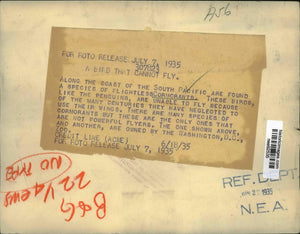 B56
FOR FOTO RELEASE JULY 7, 1935
A BIRD THAT CANNOT FLY.
ALONG THE COAST OF THE SOUTH PACIFIC, ARE FOUND
A SPECIES OF FLIGHTLESS CORMORANTS. THESE BIRDS,
LIKE THE PENGUINS, ARE UNABLE TO FLY BECAUSE
OF THE MANY CENTURIES THEY HAVE NEGLECTED TO
USE THEIR WINGS. THERE ARE MANY SPECIES OF
CORMORANTS BUT THESE ARE THE ONLY ONES THAT
ARE NOT POWERFUL FLYERS. THE ONE SHOWN ABOVE,
AND ANOTHER, ARE OWNED BY THE WASHINGTON, D.C.,
ZOO.
CREDIT LINE (ACME) 6/18/35
FOR FOTO RELEASE JULY 7, 1935
NO TYPE
22 Views
B&G
REF. DEPT.
1935
N.E.A.